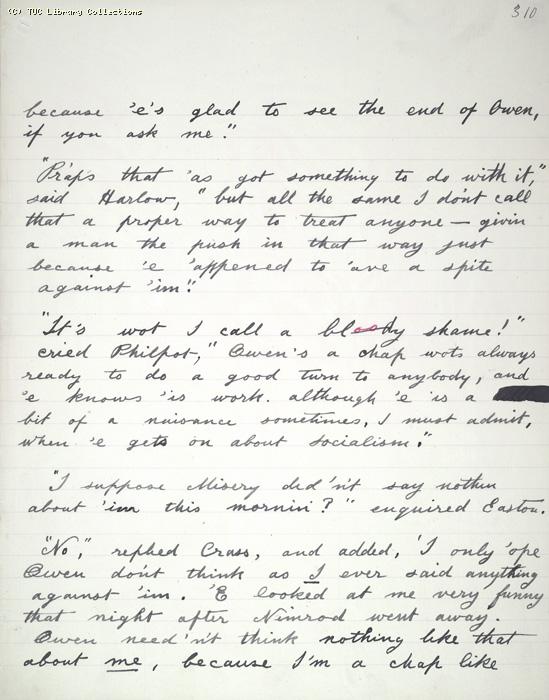 (C) TUC Library Collections
310
because 'e's glad to see the end of Owen,
if you ask me."
"Praps that 'as got something to do with it,"
said Harlow, "but all the same I don't call
that a proper way to treat anyone — givin
a man the push in that way just
because 'e 'appened to 'ave a spite
against 'im."
"It's wot I call a bloody shame!"
cried Philpot, "Owen's a chap wots always
ready to do a good turn to anybody, and
'e knows 'is work. although 'e is a
bit of a nuisance sometimes, I must admit,
when 'e gets on about socialism."
"I suppose Misery did'n't say nothin
about 'im this mornin'?" enquired Easton.
"No," replied Crass, and added, 'I only 'ope
Owen don't think as I ever said anything
against 'im. 'E looked at me very funny
that night after Nimrod went away.
Owen need'n't think nothing like that
about me, because I'm a chap like